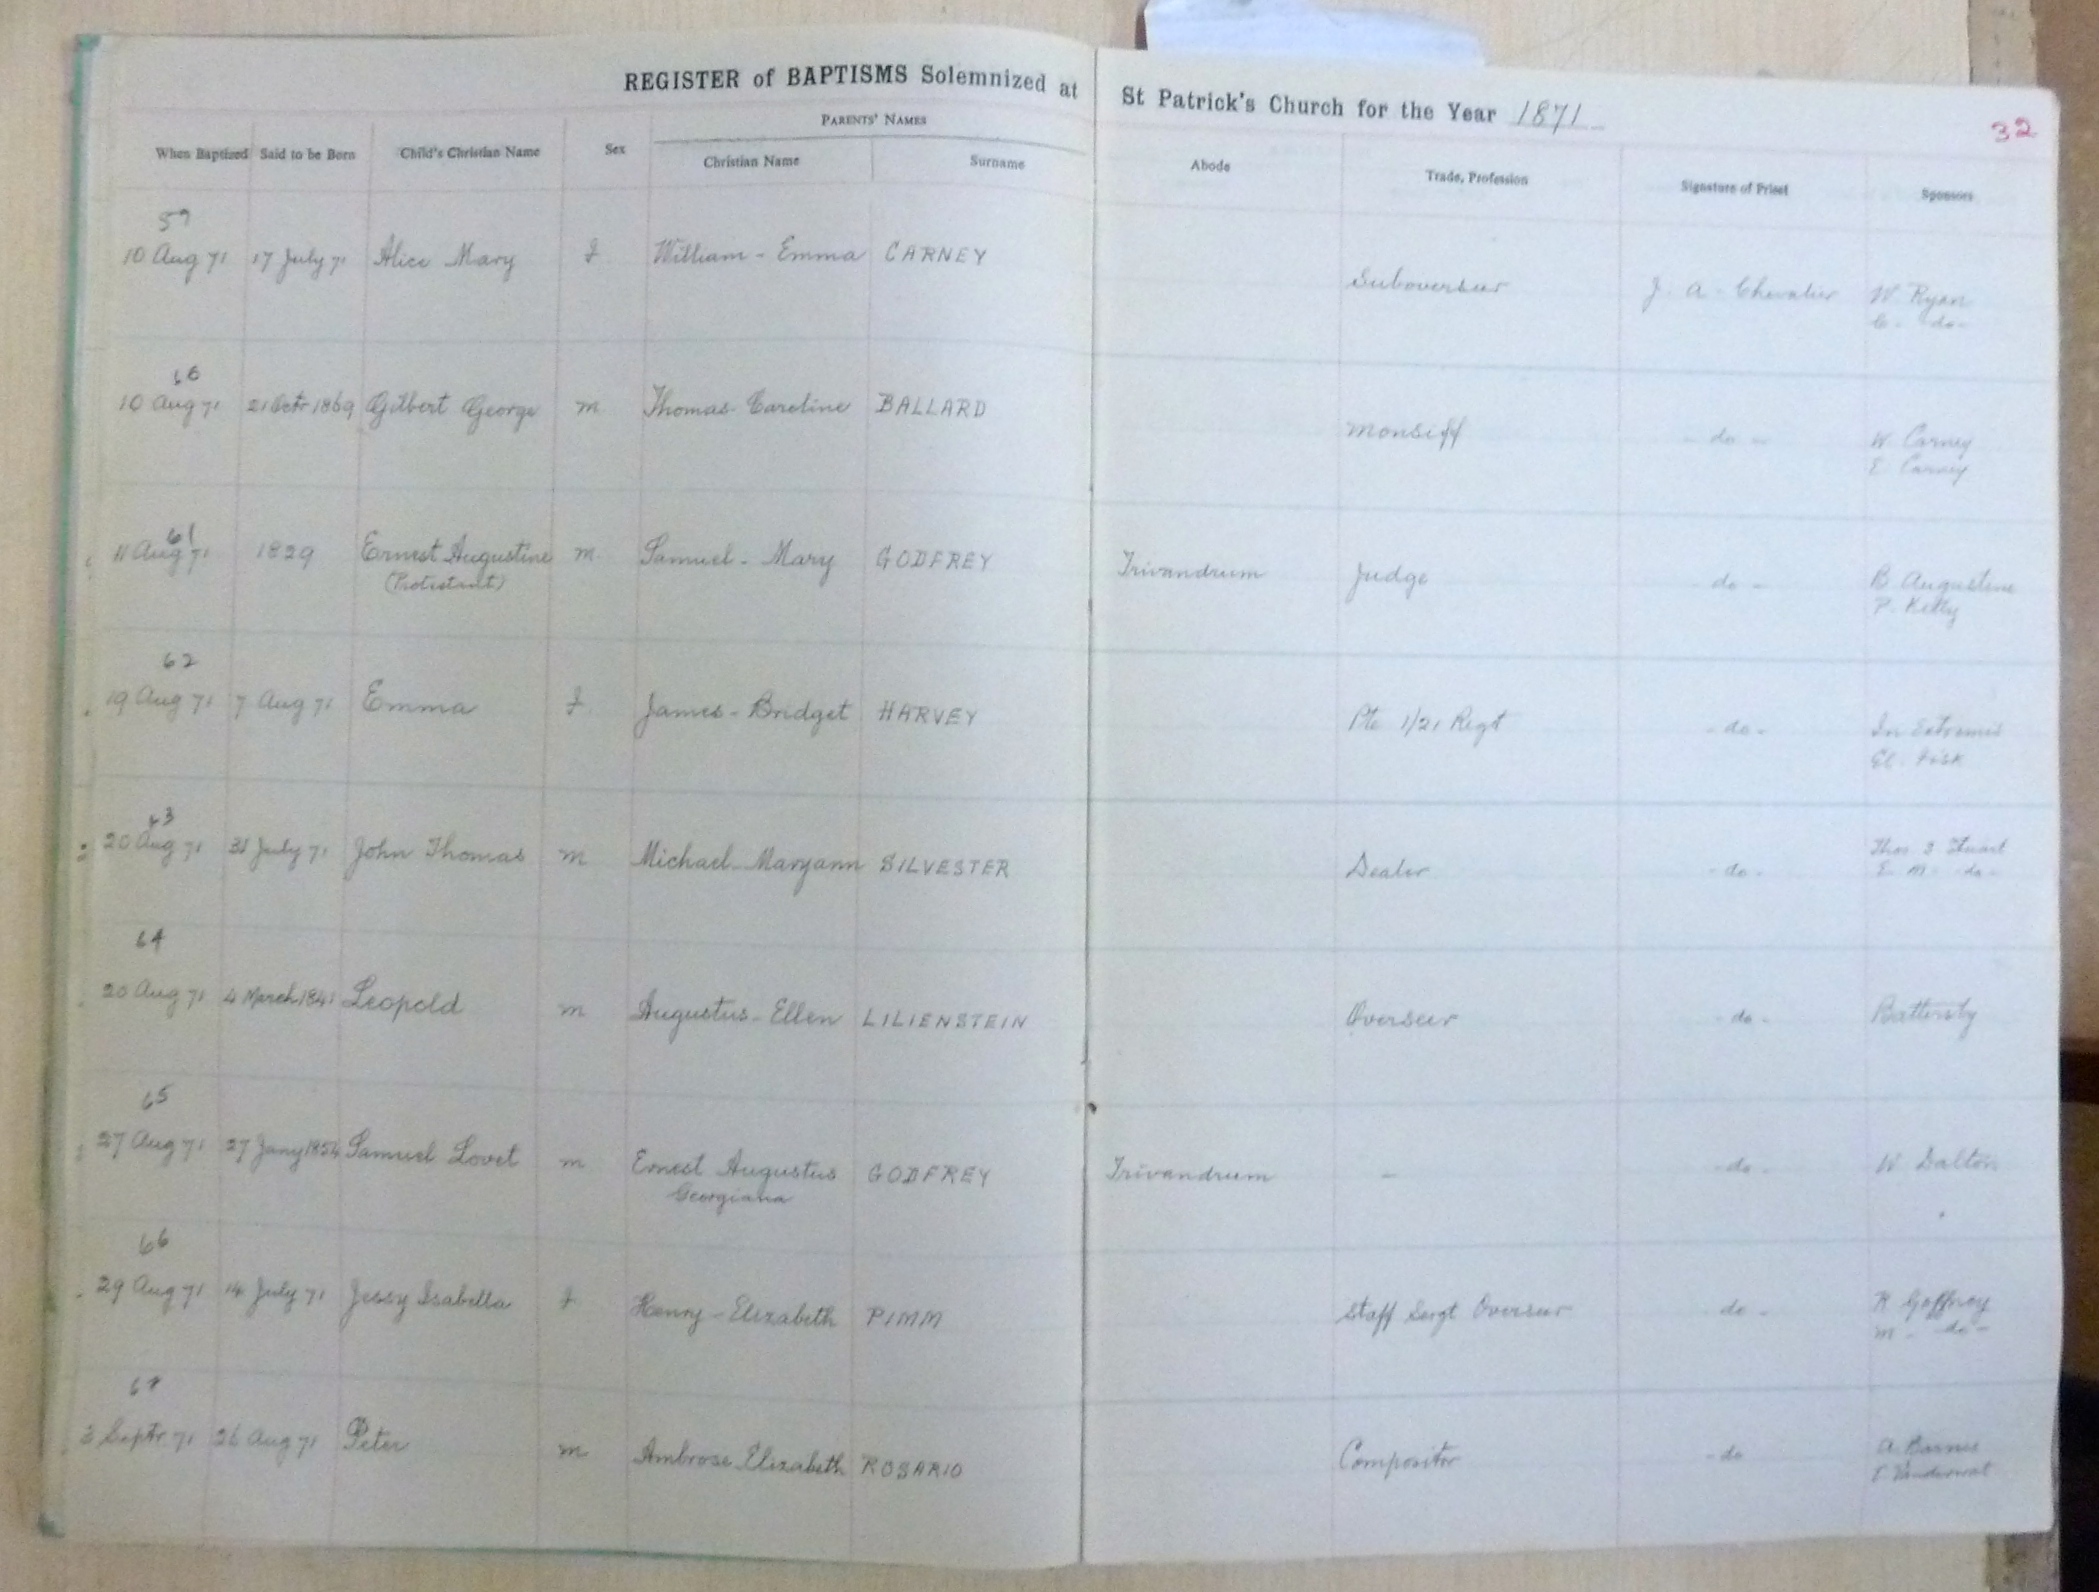 REGISTER of BAPTISMS Solemnized at St Patrick's Church for the Year 1871
32
PARENTS' NAMES
When Baptized Said to be Born Child's Christian Name Sex Christian Name Surname Abode Trade, Profession Signature of Priest Sponsors
59
10 Aug 71 17 July 71 Alice Mary f William - Emma CARNEY Suboverseer J. A. Chevalier W Ryan
- do -
60
10 Aug 71 21 Octr 1869 Gilbert George m Thomas - Caroline BALLARD Monsiff - do - W Carney
E Carney
61
11 Aug 71 1829 Ernest Augustine m Samuel - Mary GODFREY Trivandrum Judge - do - B Augustine
(Protestant) P. Kelly
62
19 Aug 71 7 Aug 71 Emma f James - Bridget HARVEY Pte 1/21 Regt - do - In Extremis
El. Fisk
63
20 Aug 71 31 July 71 John Thomas m Michael - Maryann SILVESTER Dealer - do - Thos S Stuart
E. M. - do -
64
20 Aug 71 4 March 1841 Leopold m Augustus - Ellen LILIENSTEIN Overseer - do - Battersby
65
27 Aug 71 27 Jany 1854 Samuel Lovet m Ernest Augustus GODFREY Trivandrum - - do - W Dalton
Georgiana
66
29 Aug 71 14 July 71 Jessy Isabella f Henry - Elizabeth PIMM Staff Sergt Overseer - do - R Gaffney
M - do -
67
3 Septr 71 26 Aug 71 Peter m Ambrose Elizabeth ROSARIO Compositor - do A. Barnes